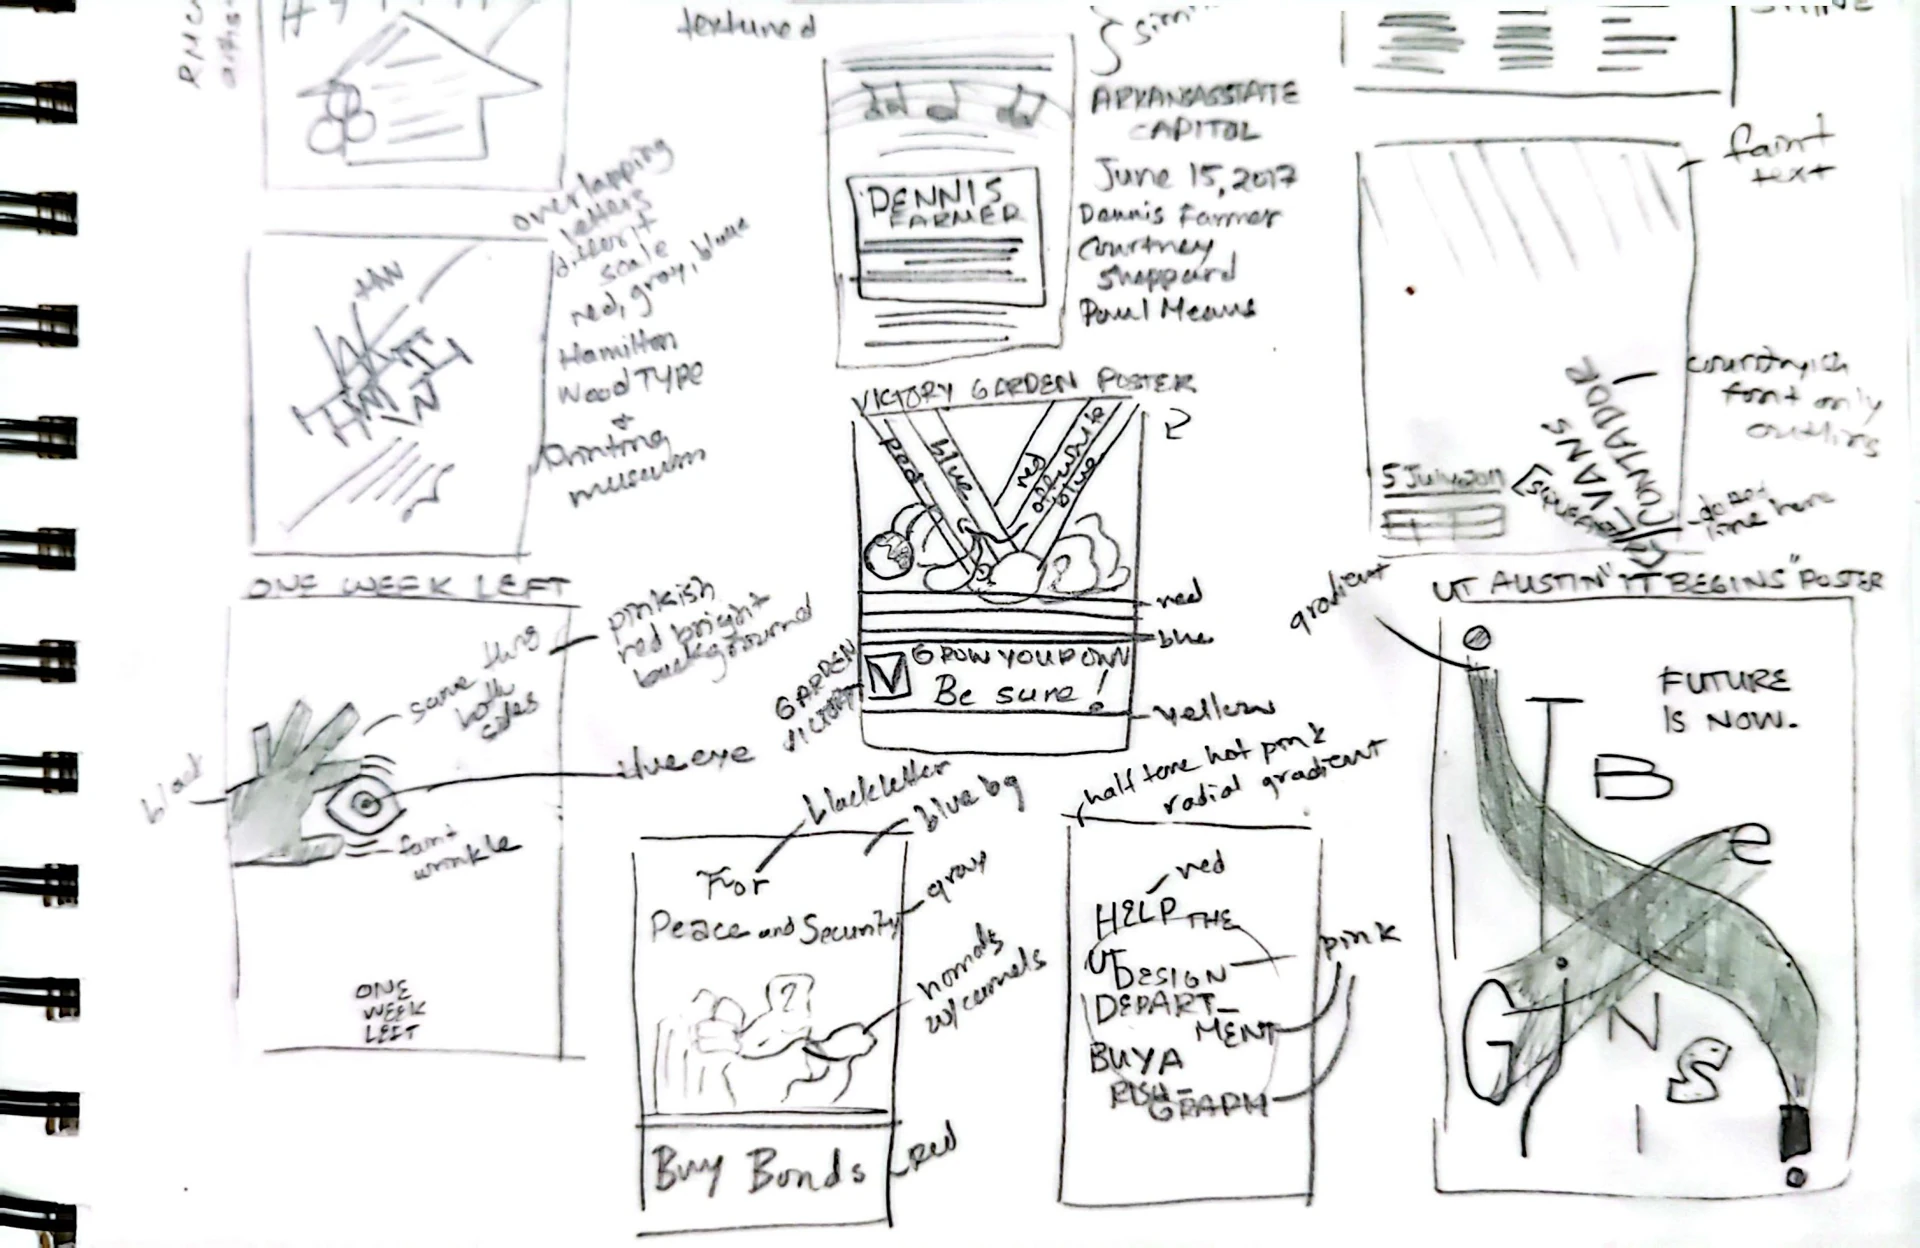 textured
ARKANSAS STATE
CAPITOL
June 15, 2017
Dennis Farmer
Courtney
Sheppard
Paul Means
DENNIS
FARMER
faint
text
overlapping
letters
scale
red, gray, blue
Hamilton
Wood TYPE
+
Printing
museum
VICTORY GARDEN POSTER
Red
blue
red
offwhite
blue
red
blue
GARDEN
VICTORY
V
GROW YOUR OWN
Be sure!
yellow
font only
5 July 2011
EVANS
CONTADOR
line here
ONE WEEK LEFT
pinkish
red bright
background
same
both
sides
black
blue eye
faint
wrinkle
ONE
WEEK
LEFT
blackletter
blue bg
For
Peace and Security
gray
w/ camels
Buy Bonds
Red
half tone hot pink
radial gradient
red
HELP THE
UT
DESIGN
DEPART-
MENT
BUY A
RISO-
GRAPH
pink
gradient
UT AUSTIN "IT BEGINS" POSTER
FUTURE
IS NOW.
I
T
B
e
G
I
N
S